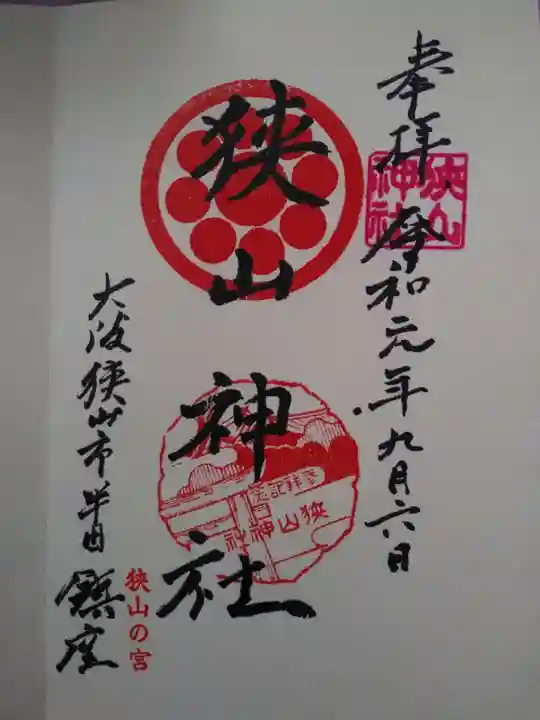 奉拝 令和元年九月六日
狭山神社
狭山神社
参拝記念
狭山神社
大阪狭山市半田
鎮座
狭山の宮